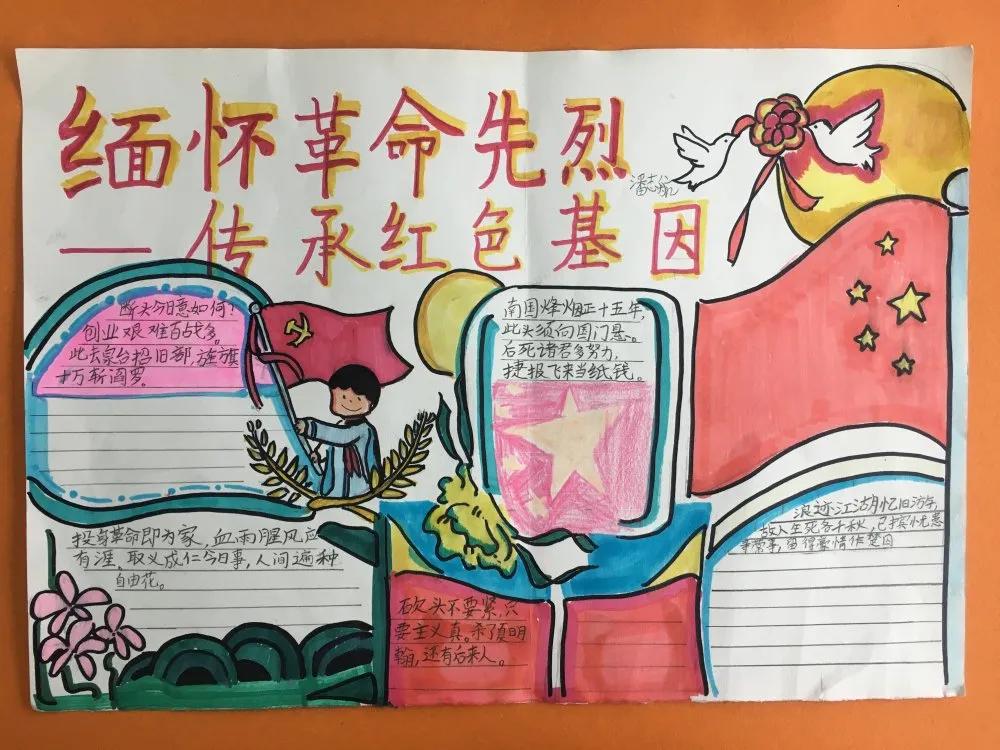 缅怀革命先烈
潘志航
——传承红色基因
断头今日意如何?
创业艰难百战多。
此去泉台招旧部,旌旗
十万斩阎罗。
南国烽烟正十五年,
此头须向国门悬。
后死诸君多努力,
捷报飞来当纸钱。
投身革命即为家,血雨腥风应
有涯。取义成仁今日事,人间遍种
自由花。
砍头不要紧,只
要主义真。杀了夏明
翰,还有后来人。
浪迹江湖忆旧游,
故人生死各千秋,已摈忧患
寻常事,留得豪情作楚囚